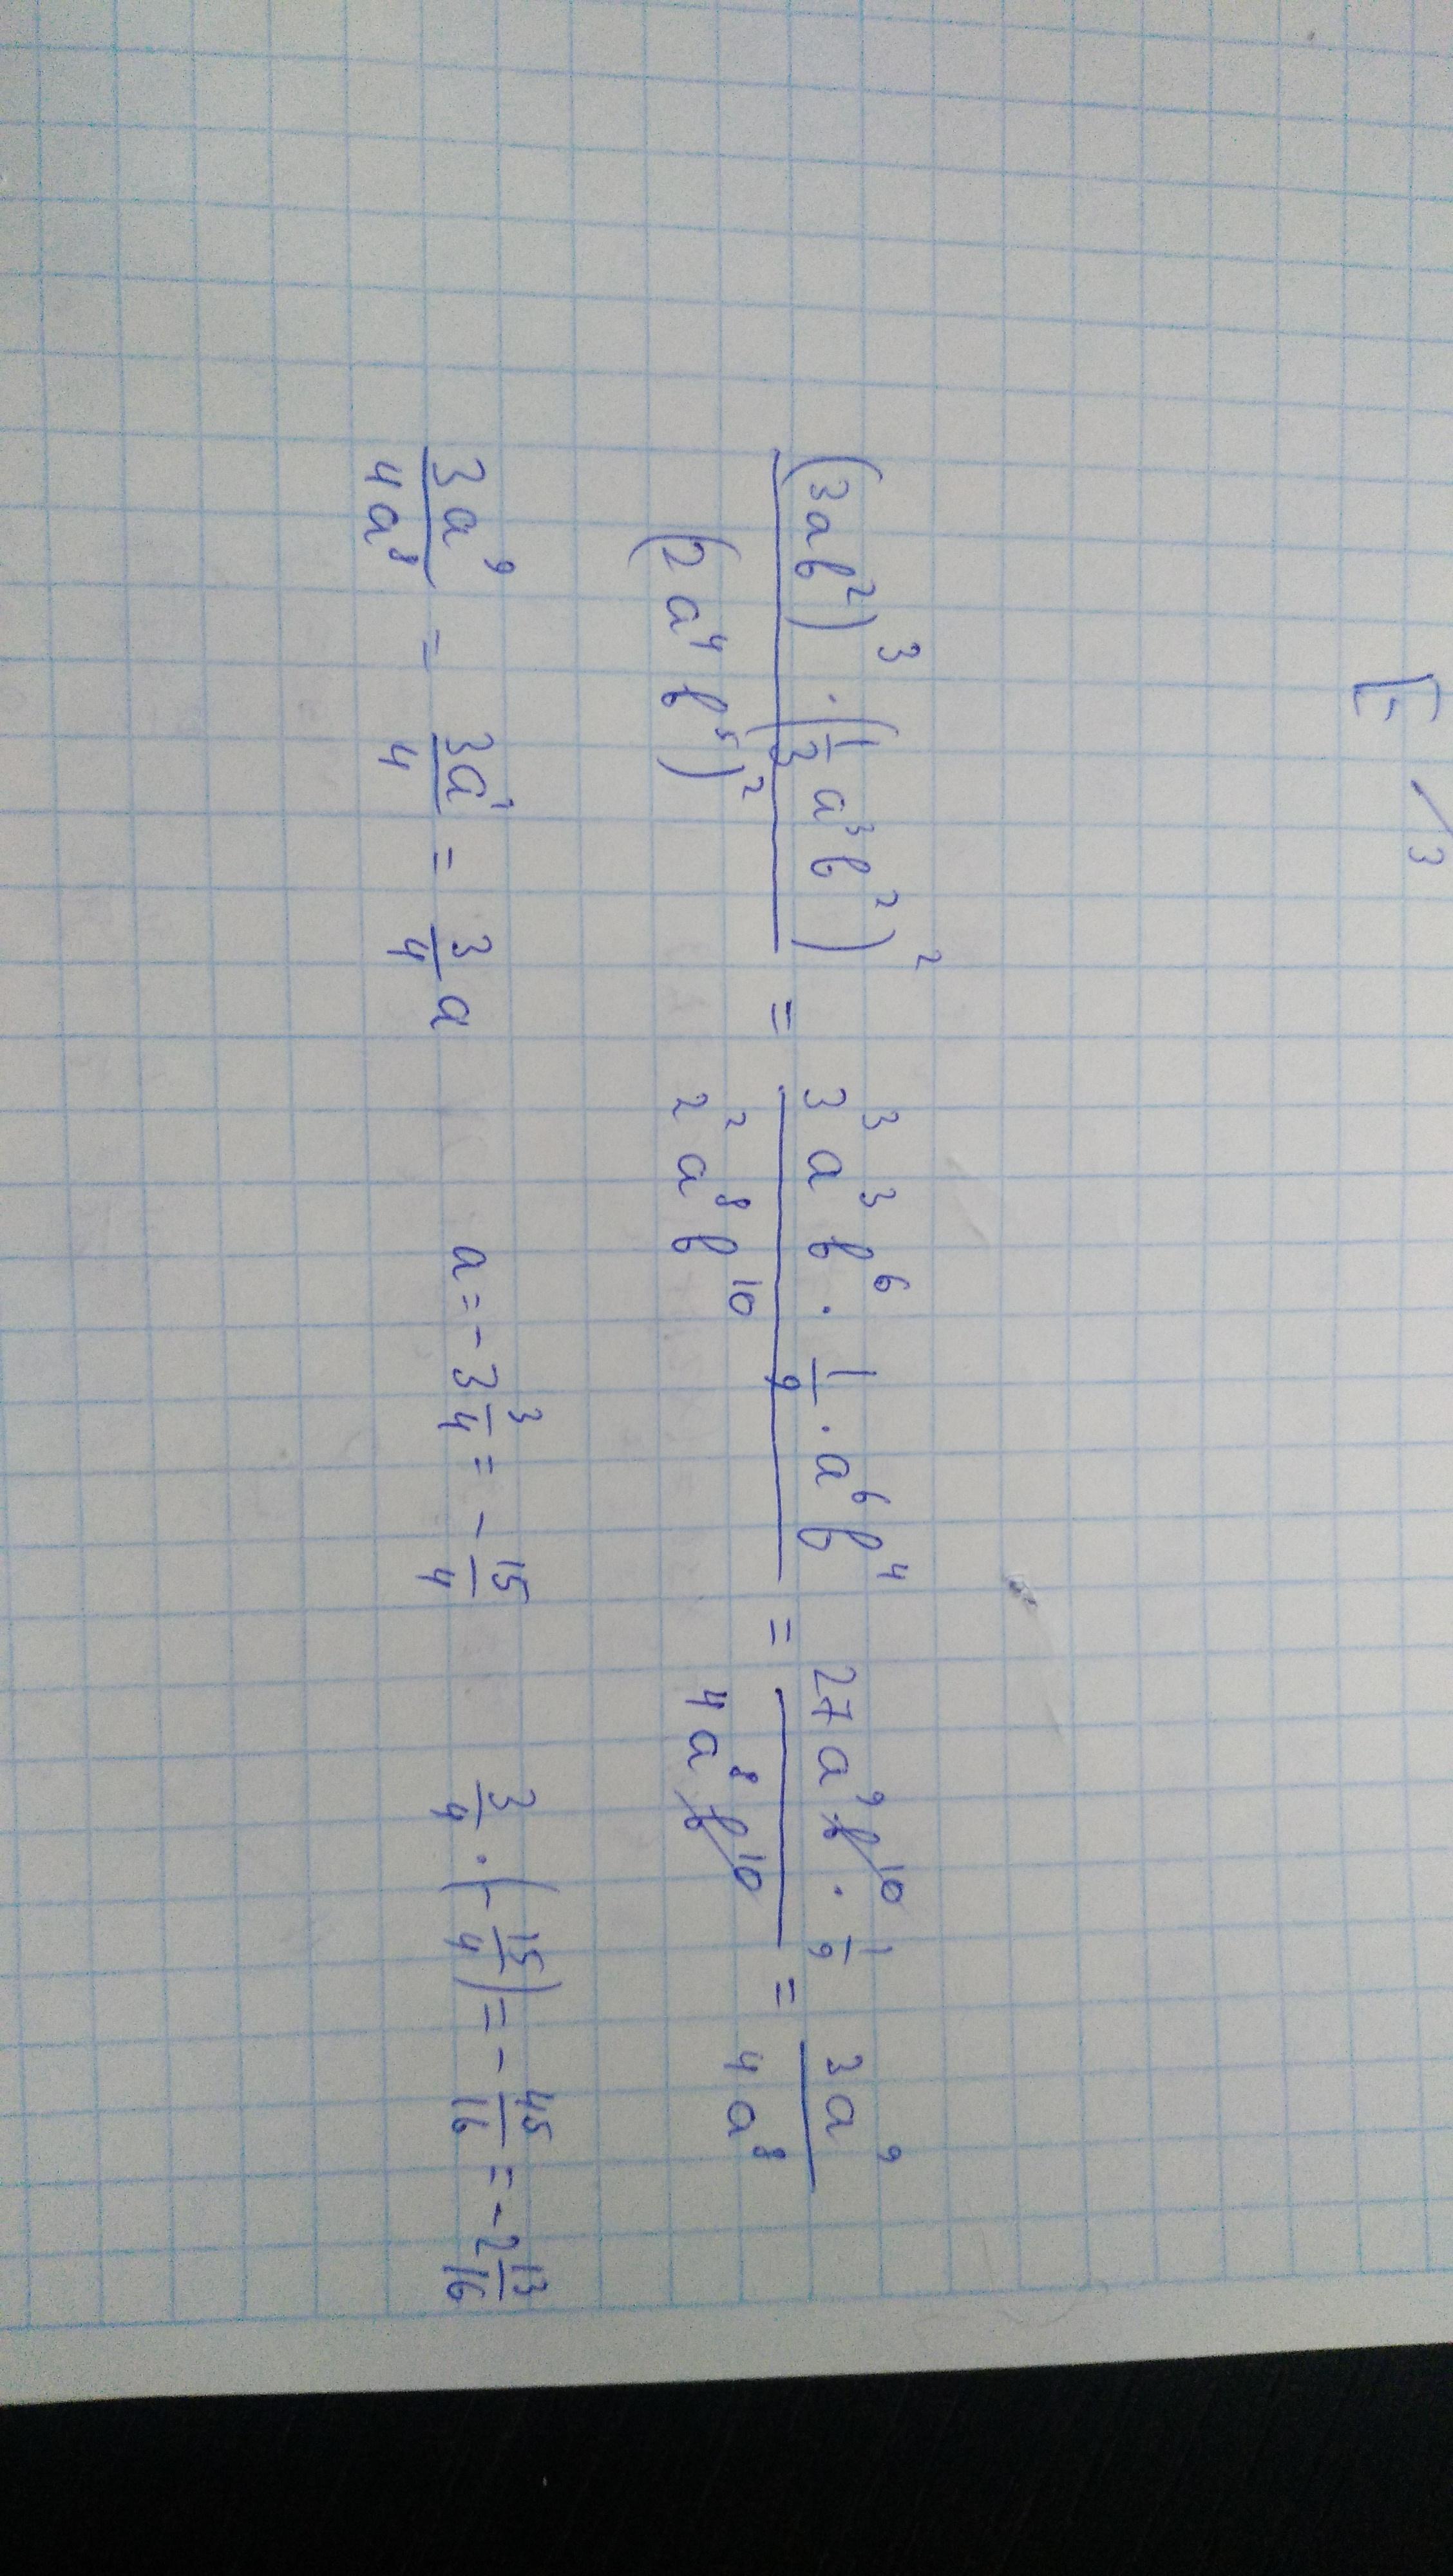 (3ab²)³ · (1/3 a³b²)² / (2a⁴b⁵)² = 3³a³b⁶ · 1/9 · a⁶b⁴ / 2²a⁸b¹⁰ = 27a⁹b¹⁰ · 1/9 / 4a⁸b¹⁰ = 3a⁹ / 4a⁸
3a⁹ / 4a⁸ = 3a¹ / 4 = 3/4 a a = -3 3/4 = - 15/4 3/4 · (- 15/4) = - 45/16 = -2 13/16